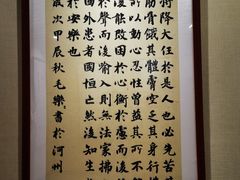 將降大任於是人也必先苦
筋骨餓其體膚空乏其身行
所以動心忍性曾益其所不
後能改困於心衡於慮而後
於聲而後喻入則無法家拂
國外患者國恒亡然後知生
於安樂也
歲次甲辰秋毛樂書於河州